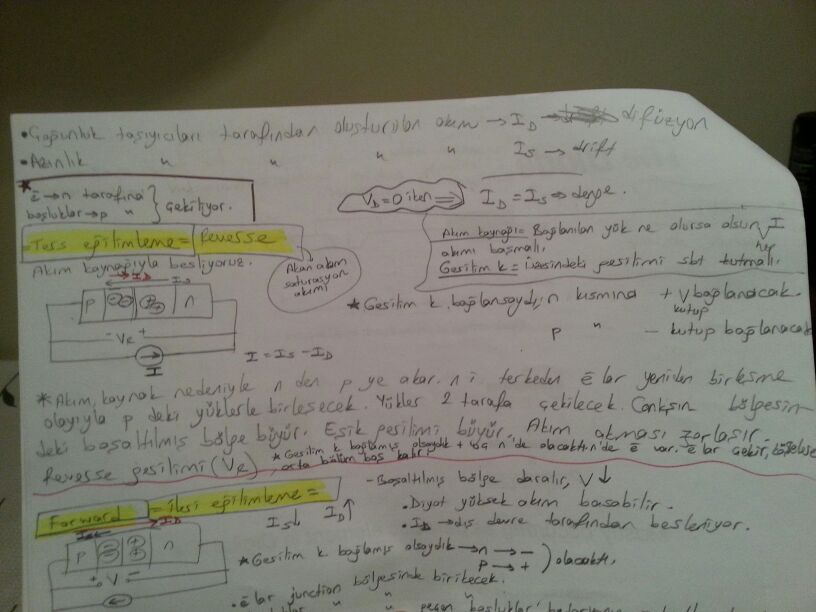 • Çoğunluk taşıyıcıları tarafından oluşturulan akım → I_D → difüzyon
• Azınlık " " " " I_S → drift
* ē → n tarafına
boşluklar → p "
} çekiliyor.
V_D = 0 iken ⇒ I_D = I_S ⇒ denge.
= Ters eğilimleme = Reverse
Akım kaynağıyla besliyoruz.
Akan akım
saturasyon
akımı
Akım kaynağı = Bağlanılan yük ne olursa olsun hep I
akımı basmalı.
Gesilim k = üzesindeki gesilimi sbt tutmalı.
I_D
p n
- V_R +
I
I = I_S - I_D
* Gesilim k. bağlansaydı; n kısmına + V bağlanacak.
kutup
p " - kutup bağlanacak
* Akım, kaynak nedeniyle n den p ye akar. n i terkeden ē lar yeniden birleşme
olayıyla p deki yüklerle birleşecek. Yükler 2 tarafa çekilecek. Conkşın bölgesin
deki boşaltılmış bölge büyür. Eşik gesilimi büyür. Akım akması zorlaşır.
* Gesilim k bağlamış olsaydık + uç n'de olacaktı. n'de ē var. ē lar çekir,
Reverse gesilimi (V_R) , orta bölüm boş kalır.
Forward = ileri eğilimleme =
I_S↓ I_D↑
- Boşaltılmış bölge daralır, V↓
• Diyot yüksek akım basabilir.
• I_D → dış devre tarafından besleniyor.
I_D
p n
+ V -
* Gesilim k bağlamış olsaydık → n → -
p → +
) olacaktı.
• ē lar junction bölgesinde birikecek.
" " "